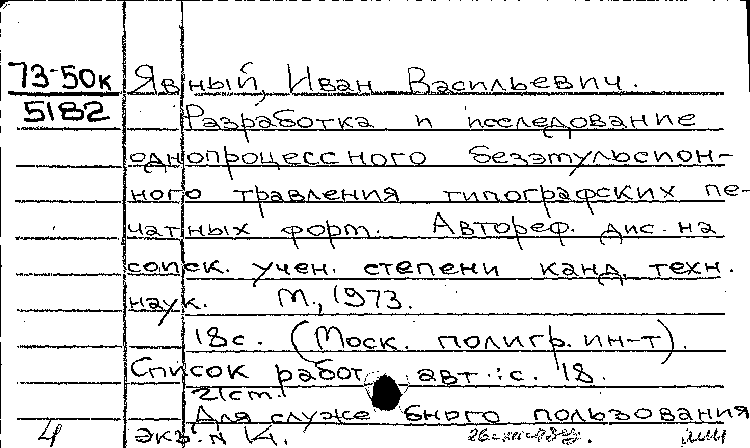 73-50к
5182
Явный, Иван Васильевич.
Разработка и исследование
однопроцессного безэмульсион-
ного травления типографских пе-
чатных форм. Автореф. дис. на
соиск. учен. степени канд. техн.
наук. М., 1973.
18с. (Моск. полигр. ин-т).
Список работ авт.: с. 18.
21 ст.
Для служебного пользования
4 Экз. N 14.